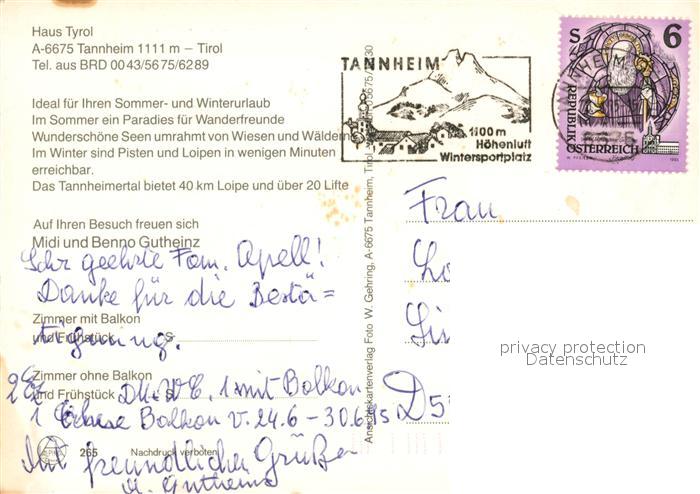 Haus Tyrol
A-6675 Tannheim 1111 m – Tirol
Tel. aus BRD 00 43/56 75/62 89
Ideal für Ihren Sommer- und Winterurlaub
Im Sommer ein Paradies für Wanderfreunde
Wunderschöne Seen umrahmt von Wiesen und Wäldern
Im Winter sind Pisten und Loipen in wenigen Minuten
erreichbar.
Das Tannheimertal bietet 40 km Loipe und über 20 Lifte
Auf Ihren Besuch freuen sich
Midi und Benno Gutheinz
Sehr geehrte Fam. Apell!
Danke für die Bestä=
tigung.
Zimmer mit Balkon
und Frühstück S
Zimmer ohne Balkon
und Frühstück S
1 mit Balkon
1 Balkon v. 24.6 – 30.6
265 Nachdruck verboten
Mit freundlichen Grüßen
Ansichtskartenverlag Foto W. Gehring, A-6675 Tannheim, Tirol
TANNHEIM
1100 m
Höhenluft
Wintersportplatz
S 6
REPUBLIK
ÖSTERREICH
Frau
privacy protection
Datenschutz